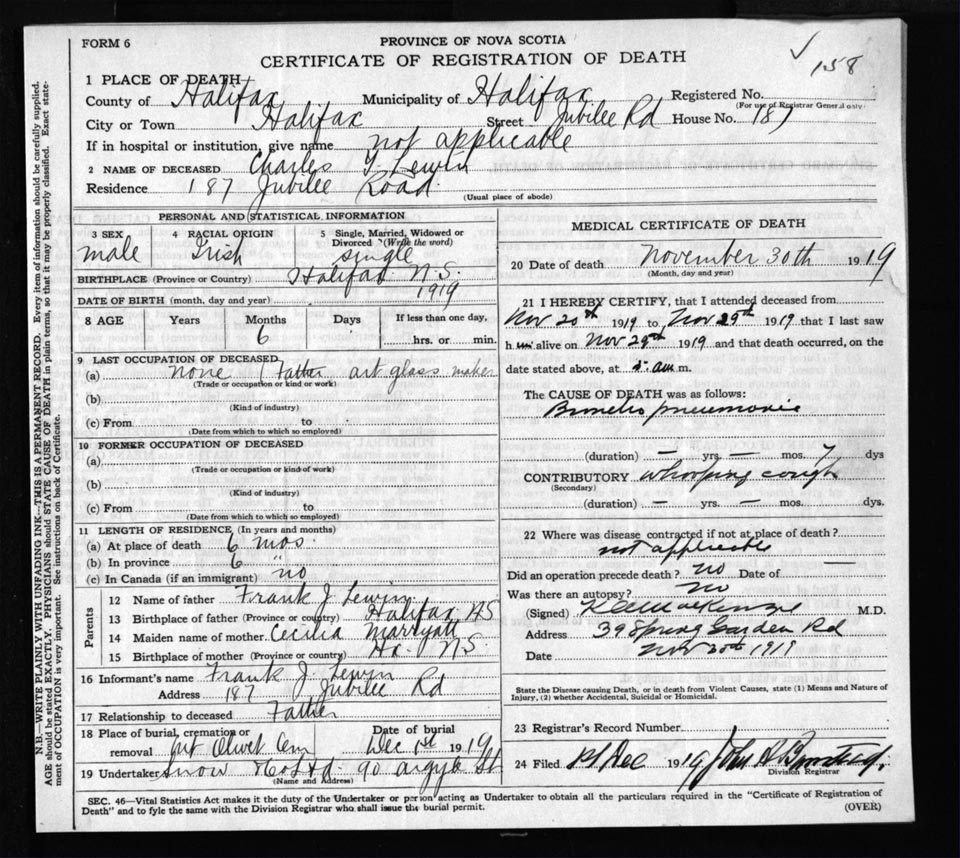 FORM 6
PROVINCE OF NOVA SCOTIA
CERTIFICATE OF REGISTRATION OF DEATH
✓ 158
1 PLACE OF DEATH
County of Halifax Municipality of Halifax Registered No.
(For use of Registrar General only)
City or Town Halifax Street Jubilee Rd House No. 187
If in hospital or institution, give name not applicable
2 NAME OF DECEASED Charles Lewin
Residence 187 Jubilee Road
(Usual place of abode)
PERSONAL AND STATISTICAL INFORMATION
3 SEX 4 RACIAL ORIGIN 5 Single, Married, Widowed or Divorced (Write the word)
male Irish single
BIRTHPLACE (Province or Country) Halifax N.S.
DATE OF BIRTH (month, day and year) 1919
8 AGE Years Months Days If less than one day,
6 hrs. or min.
9 LAST OCCUPATION OF DECEASED
(a) none (Father art glass maker
(Trade or occupation or kind or work)
(b)
(Kind of industry)
(c) From to
(Date from which to which so employed)
10 FORMER OCCUPATION OF DECEASED
(a)
(Trade or occupation or kind or work)
(b)
(Kind of industry)
(c) From to
(Date from which to which so employed)
11 LENGTH OF RESIDENCE (In years and months)
(a) At place of death 6 mos.
(b) In province 6 "
(c) In Canada (if an immigrant) no
Parents
12 Name of father Frank J. Lewin
13 Birthplace of father (Province or country) Halifax NS
14 Maiden name of mother Cecilia Marryatt
15 Birthplace of mother (Province or country) Hx. N.S.
16 Informant's name Frank J. Lewin
Address 187 Jubilee Rd
17 Relationship to deceased Father
18 Place of burial, cremation or removal Mt Olivet Cem Date of burial Dec 1st 1919
19 Undertaker Snow & Co Ltd. 90 Argyle St
(Name and Address)
MEDICAL CERTIFICATE OF DEATH
20 Date of death November 30th 1919
(Month, day and year)
21 I HEREBY CERTIFY, that I attended deceased from
Nov 20th 1919 to Nov 29th 1919 that I last saw
him alive on Nov 29th 1919 and that death occurred, on the
date stated above, at am m.
The CAUSE OF DEATH was as follows:
Broncho pneumonia
(duration) — yrs — mos. 7 dys
CONTRIBUTORY whooping cough
(Secondary)
(duration) — yrs. — mos. dys.
22 Where was disease contracted if not at place of death?
not applicable
Did an operation precede death? no Date of —
Was there an autopsy? no
(Signed) MacKenzie M.D.
Address 39 Spring Garden Rd
Date Nov 30th 1919
State the Disease causing Death, or in death from Violent Causes, state (1) Means and Nature of Injury, (2) whether Accidental, Suicidal or Homicidal.
23 Registrar's Record Number
24 Filed 1st Dec 1919 John
Division Registrar
SEC. 46—Vital Statistics Act makes it the duty of the Undertaker or person acting as Undertaker to obtain all the particulars required in the "Certificate of Registration of
Death" and to fyle the same with the Division Registrar who shall issue the burial permit.
(OVER)
N.B.—WRITE PLAINLY WITH UNFADING INK—THIS IS A PERMANENT RECORD. Every item of information should be carefully supplied.
AGE should be stated EXACTLY. PHYSICIANS should STATE CAUSE OF DEATH in plain terms, so that it may be properly classified. Exact state-
ment of OCCUPATION is very important. See instructions on back of Certificate.